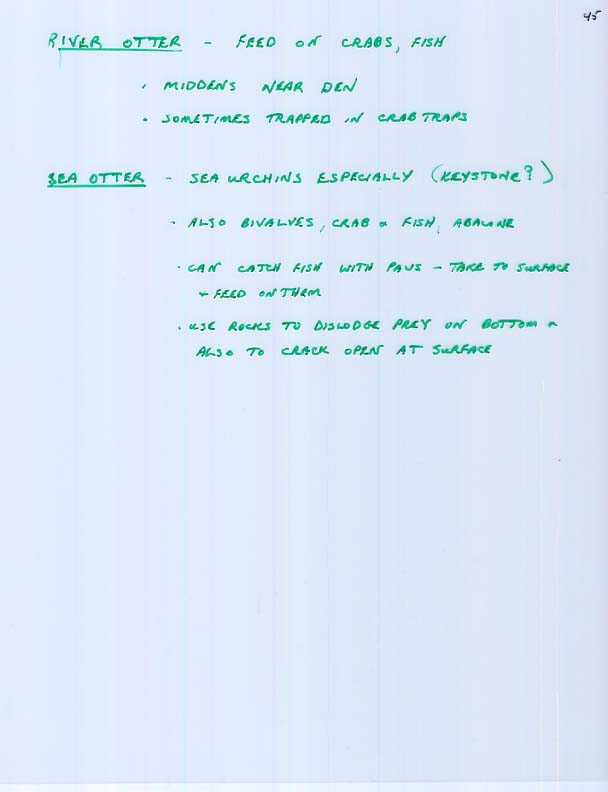 45
RIVER OTTER - FEED ON CRABS, FISH
· MIDDENS NEAR DEN
· SOMETIMES TRAPPED IN CRAB TRAPS
SEA OTTER - SEA URCHINS ESPECIALLY (KEYSTONE?)
· ALSO BIVALVES, CRAB & FISH, ABALONE
· CAN CATCH FISH WITH PAWS - TAKE TO SURFACE
& FEED ON THEM
· USE ROCKS TO DISLODGE PREY ON BOTTOM &
ALSO TO CRACK OPEN AT SURFACE